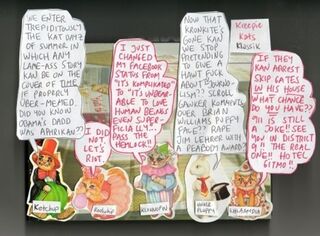 WE ENTER
TREPIDITOUSLY
THE KAT DAYZ
OF SUMMER IN
WHICH ANY
LAME-ASS STORY
CAN BE ON THE
COVER OF TIME
IF PROPERLY
ÜBER-MEMED.
DID YOU KNOW
OBAMA'S DADD
WAS AFRIKAN??
I DID
NOT.
LET'S
RIOT.
I JUST
CHANGED
MY FACEBOOK
STATUS FROM
"IT'S KOMPLIKATED"
TO "IT'S UNBEAR-
ABLE TO LOVE
HUMAN BEINGS
EVEN SUPER-
FICIALLY..."
PASS THE
HEMLOCK!!
NOW THAT
KRONKITE'S
GONE KAN
WE STOP
PRETENDING TO
GIVE A
HAWT FUCK
ABOUT
LISM?? SCROLL
GAWKER KOMMENTS
OVER BRIAN
WILLIAMS POPPY
FACE?? RAPE
JIM LEHRER WITH
A PEABODY AWARD?
Kreepie
Kats
Klassik
IF THEY
KAN ARREST
SKIP GATES
IN HIS HOUSE
WHAT CHANCE
DO YOU HAVE??
911 IS STILL
A JOKE!! SEE
YOU IN DISTRICT
9!! THE REAL
ONE!! HOTEL
GITMO!!
Ketchup
KLONOFIN
UNKLE
FLOPPY